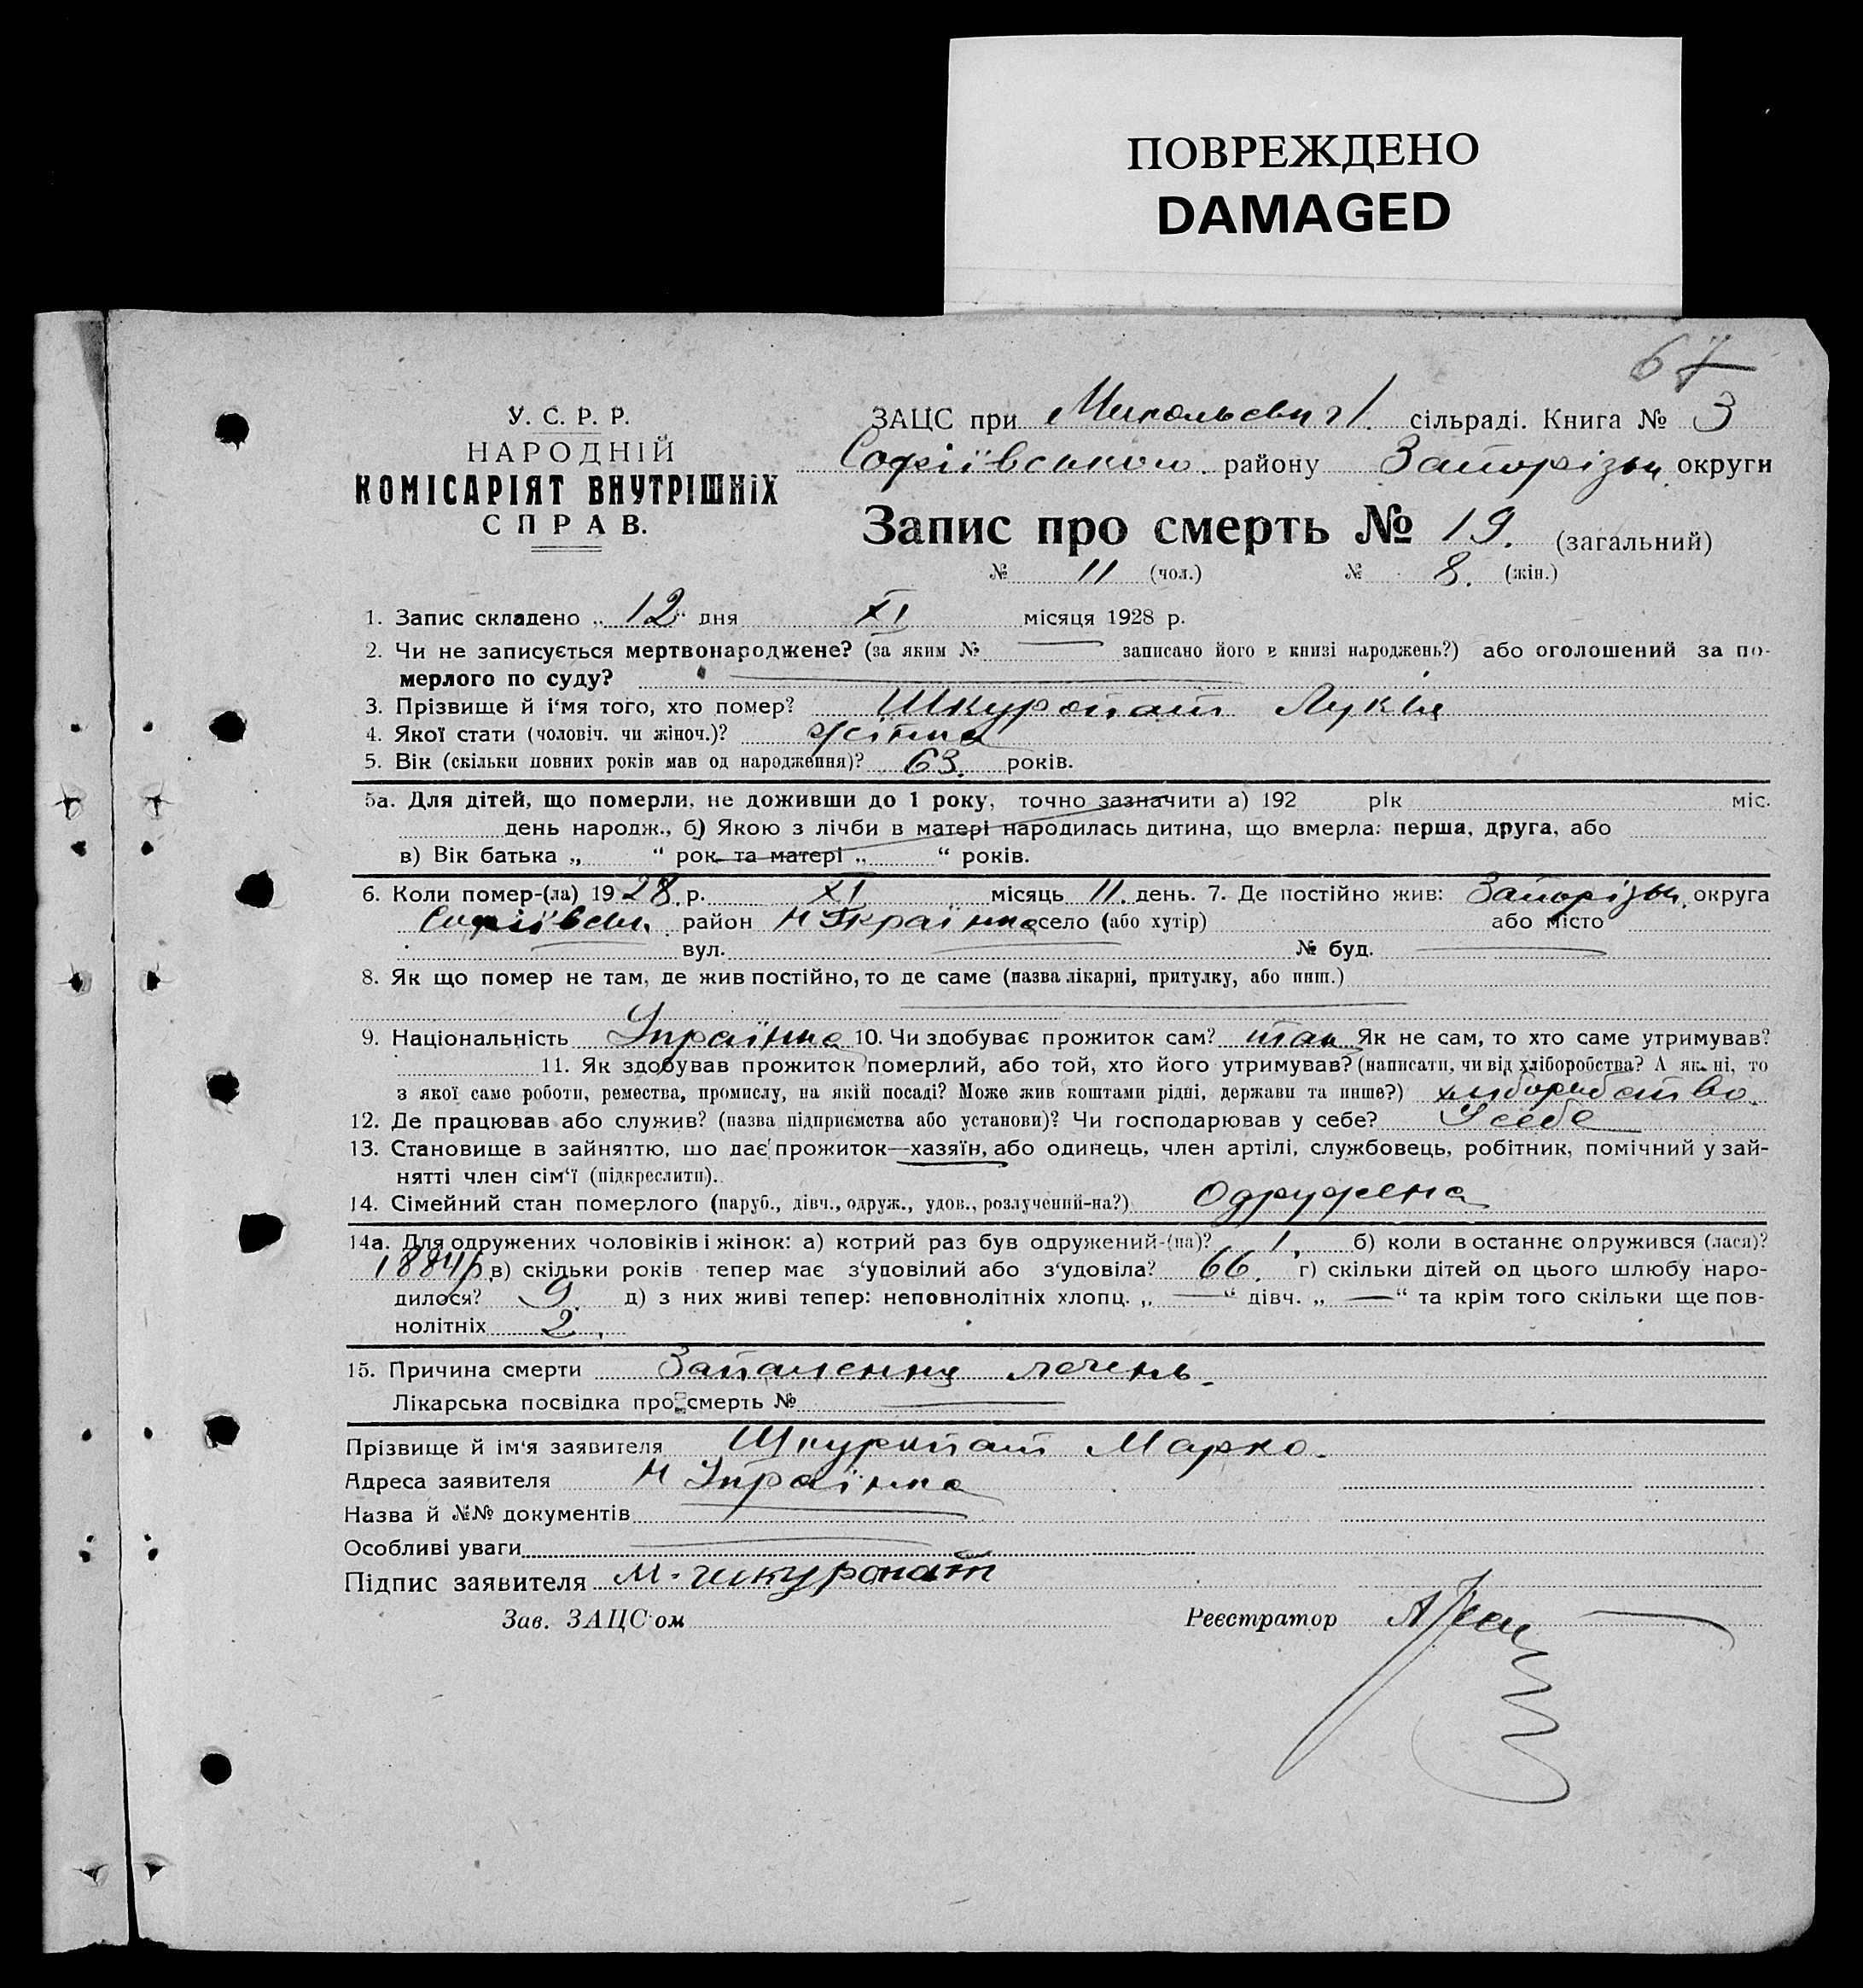 ПОВРЕЖДЕНО
DAMAGED
67
У. С. Р. Р.
НАРОДНІЙ
КОМІСАРІЯТ ВНУТРІШНІХ
СПРАВ.
ЗАЦС при сільраді. Книга № 3
Софіївського району Запорізьк. округи
Запис про смерть № 19. (загальний)
№ 11 (чол.) № 8. (жін.)
1. Запис складено „ 12 “ дня XI місяця 1928 р.
2. Чи не записується мертвонароджене? (за яким № — записано його в книзі народжень?) або оголошений за по-
мерлого по суду? —
3. Прізвище й і‘мя того, хто помер? Шкуропат Лукія
4. Якої стати (чоловіч. чи жіноч.)? жіноча
5. Вік (скільки повних років мав од народження)? 63. років.
5а. Для дітей, що померли, не доживши до 1 року, точно зазначити а) 192 рік міс.
день народж., б) Якою з лічби в матері народилась дитина, що вмерла: перша, друга, або
в) Вік батька „ “ рок. та матері „ “ років.
6. Коли помер-(ла) 1928. р. XI місяць 11. день. 7. Де постійно жив: Запорізьк. округа
Софіївськ. район Н Українка село (або хутір) або місто
вул. — № буд. —
8. Як що помер не там, де жив постійно, то де саме (назва лікарні, притулку, або инш.)
—
9. Національність Українка 10. Чи здобуває прожиток сам? так Як не сам, то хто саме утримував?
11. Як здобував прожиток померлий, або той, хто його утримував? (написати, чи від хліборобства? А як ні, то
з якої саме роботи, ремества, промислу, на якій посаді? Може жив коштами рідні, держави та инше?) хліборобство.
12. Де працював або служив? (назва підприємства або установи)? Чи господарював у себе? У себе
13. Становище в зайняттю, що дає прожиток—хазяїн, або одинець, член артілі, службовець, робітник, помічний у зай-
нятті член сім‘ї (підкреслити).
14. Сімейний стан померлого (паруб., дівч., одруж., удов., розлучений-на?) Одружена
14а. Для одружених чоловіків і жінок: а) котрий раз був одружений-(на)? 1. б) коли востаннє одружився (лася)?
1884р. в) скільки років тепер має з‘удовілий або з‘удовіла? 66. г) скільки дітей од цього шлюбу наро-
дилося? 9 д) з них живі тепер: неповнолітніх хлопц. „ — “ дівч. „ — “ та крім того скільки ще пов-
нолітніх 2.
15. Причина смерти Запалення печень.
Лікарська посвідка про смерть № —
Прізвище й ім‘я заявителя Шкуропат Марко.
Адреса заявителя Н Українка
Назва й №№ документів —
Особливі уваги —
Підпис заявителя М. Шкуропат
Зав. ЗАЦС‘ом Реєстратор